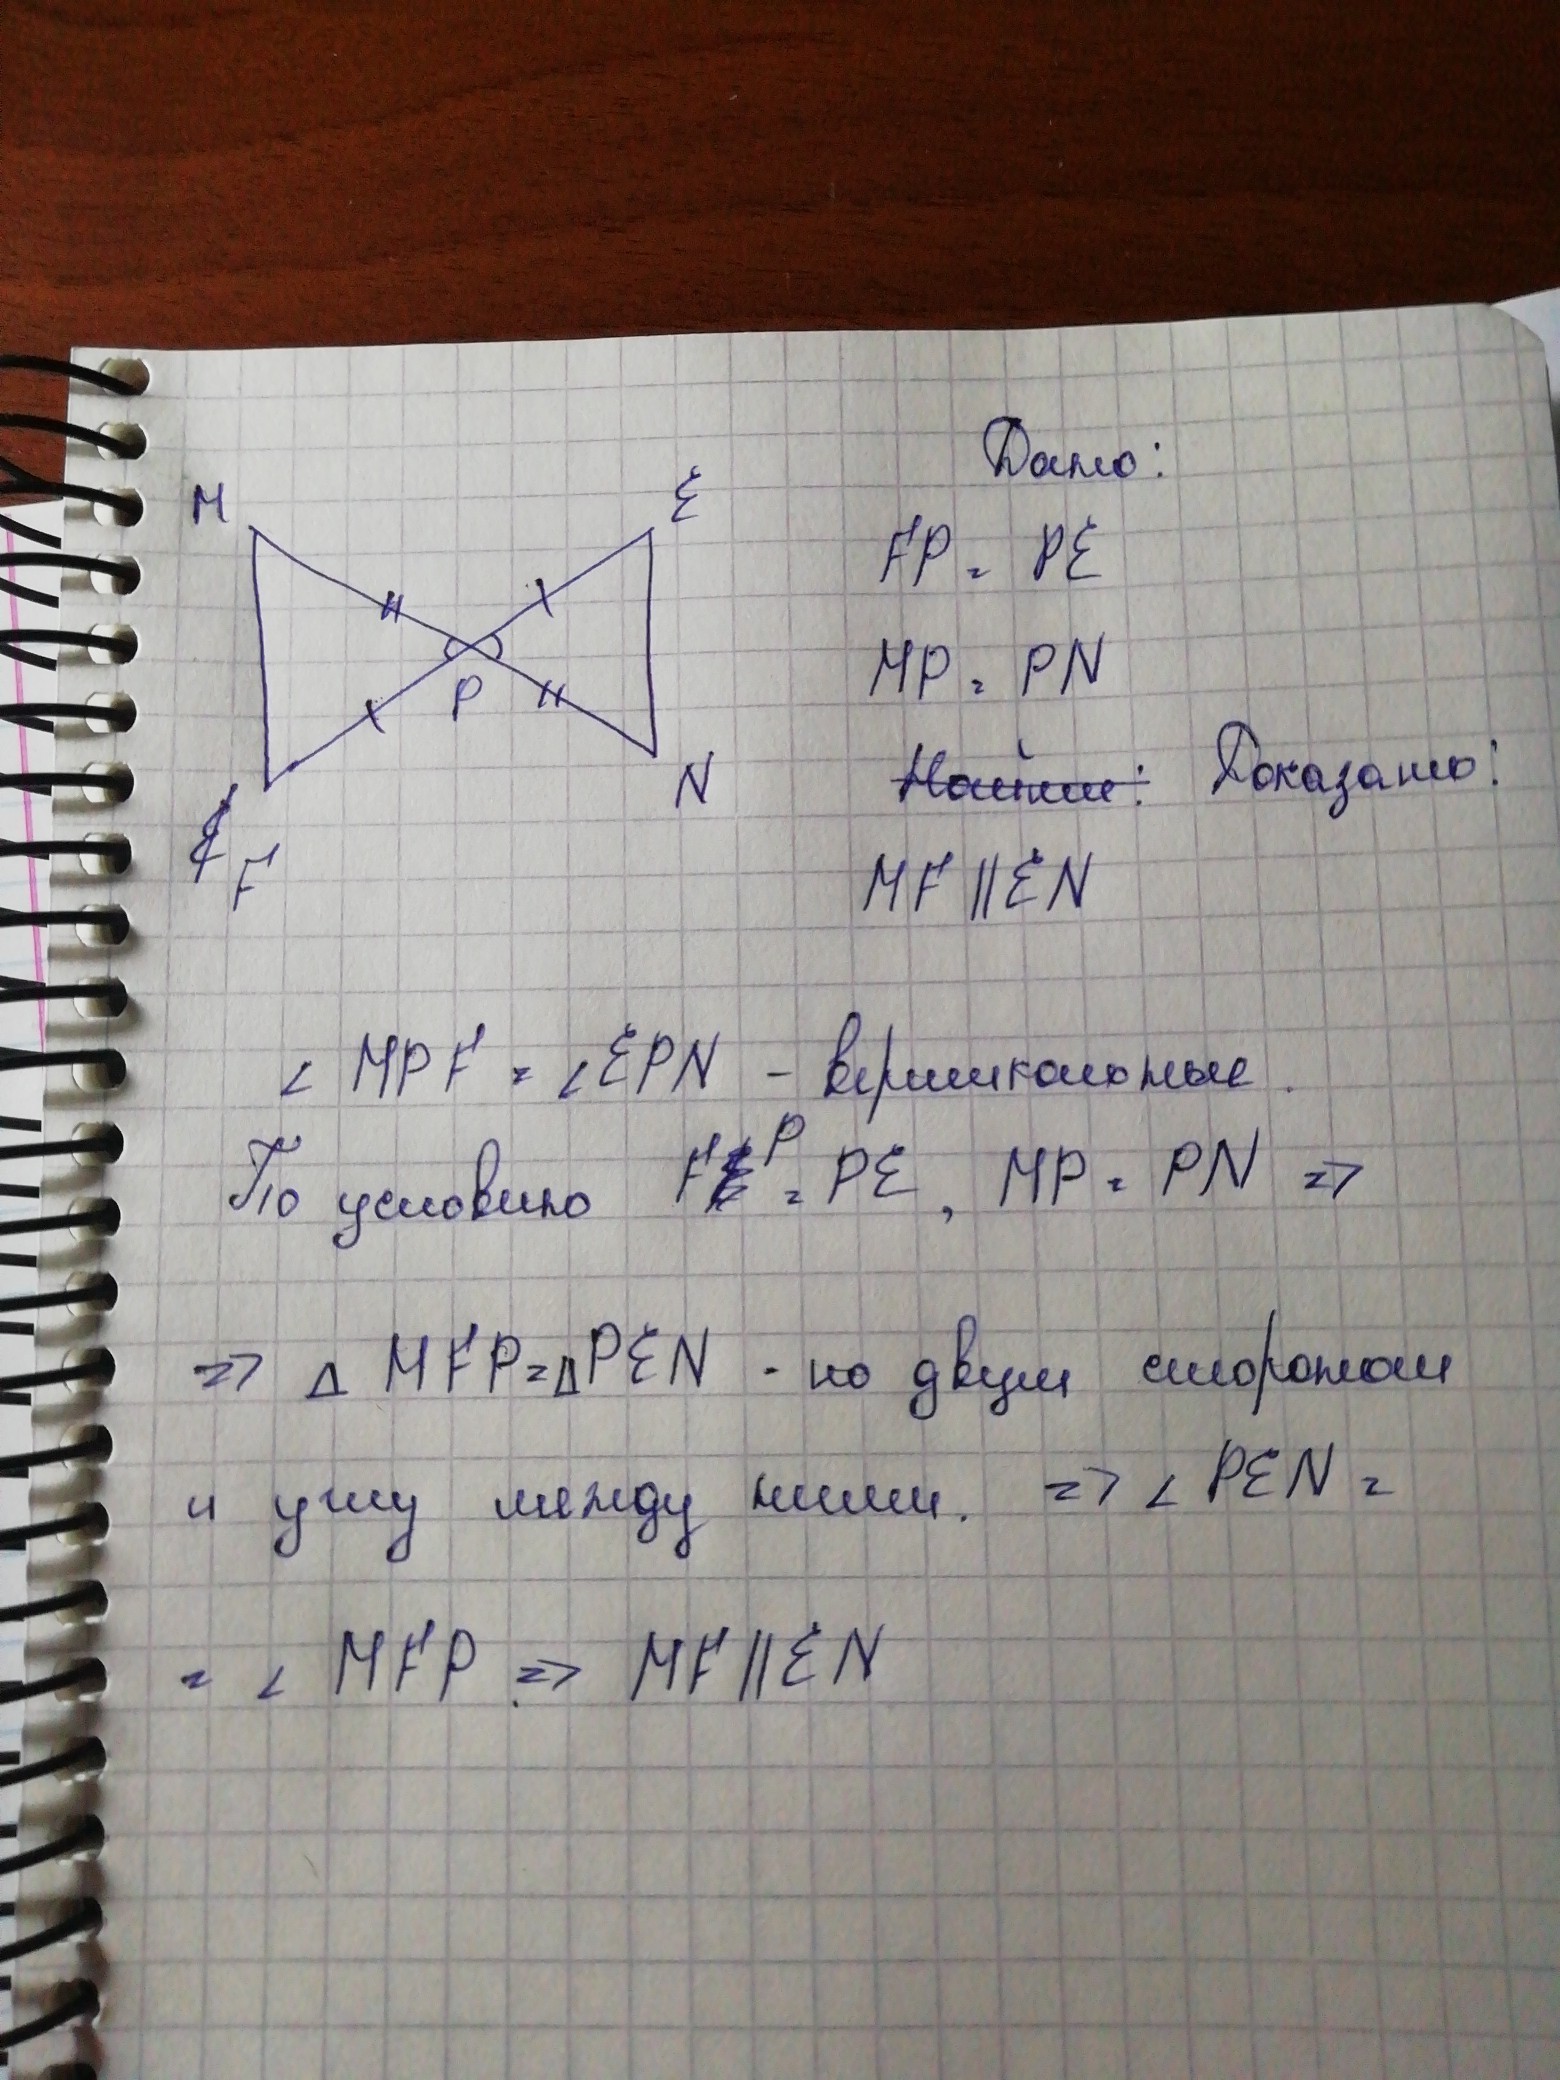 M E
P
N
F
Дано:
FP = PE
MP = PN
Найти: Доказать:
MF || EN
∠ MPF = ∠EPN - вертикальные.
По условию FP = PE, MP = PN =>
=> Δ MFP = ΔPEN - по двум сторонам
и углу между ними. => ∠ PEN =
= ∠ MFP => MF || EN